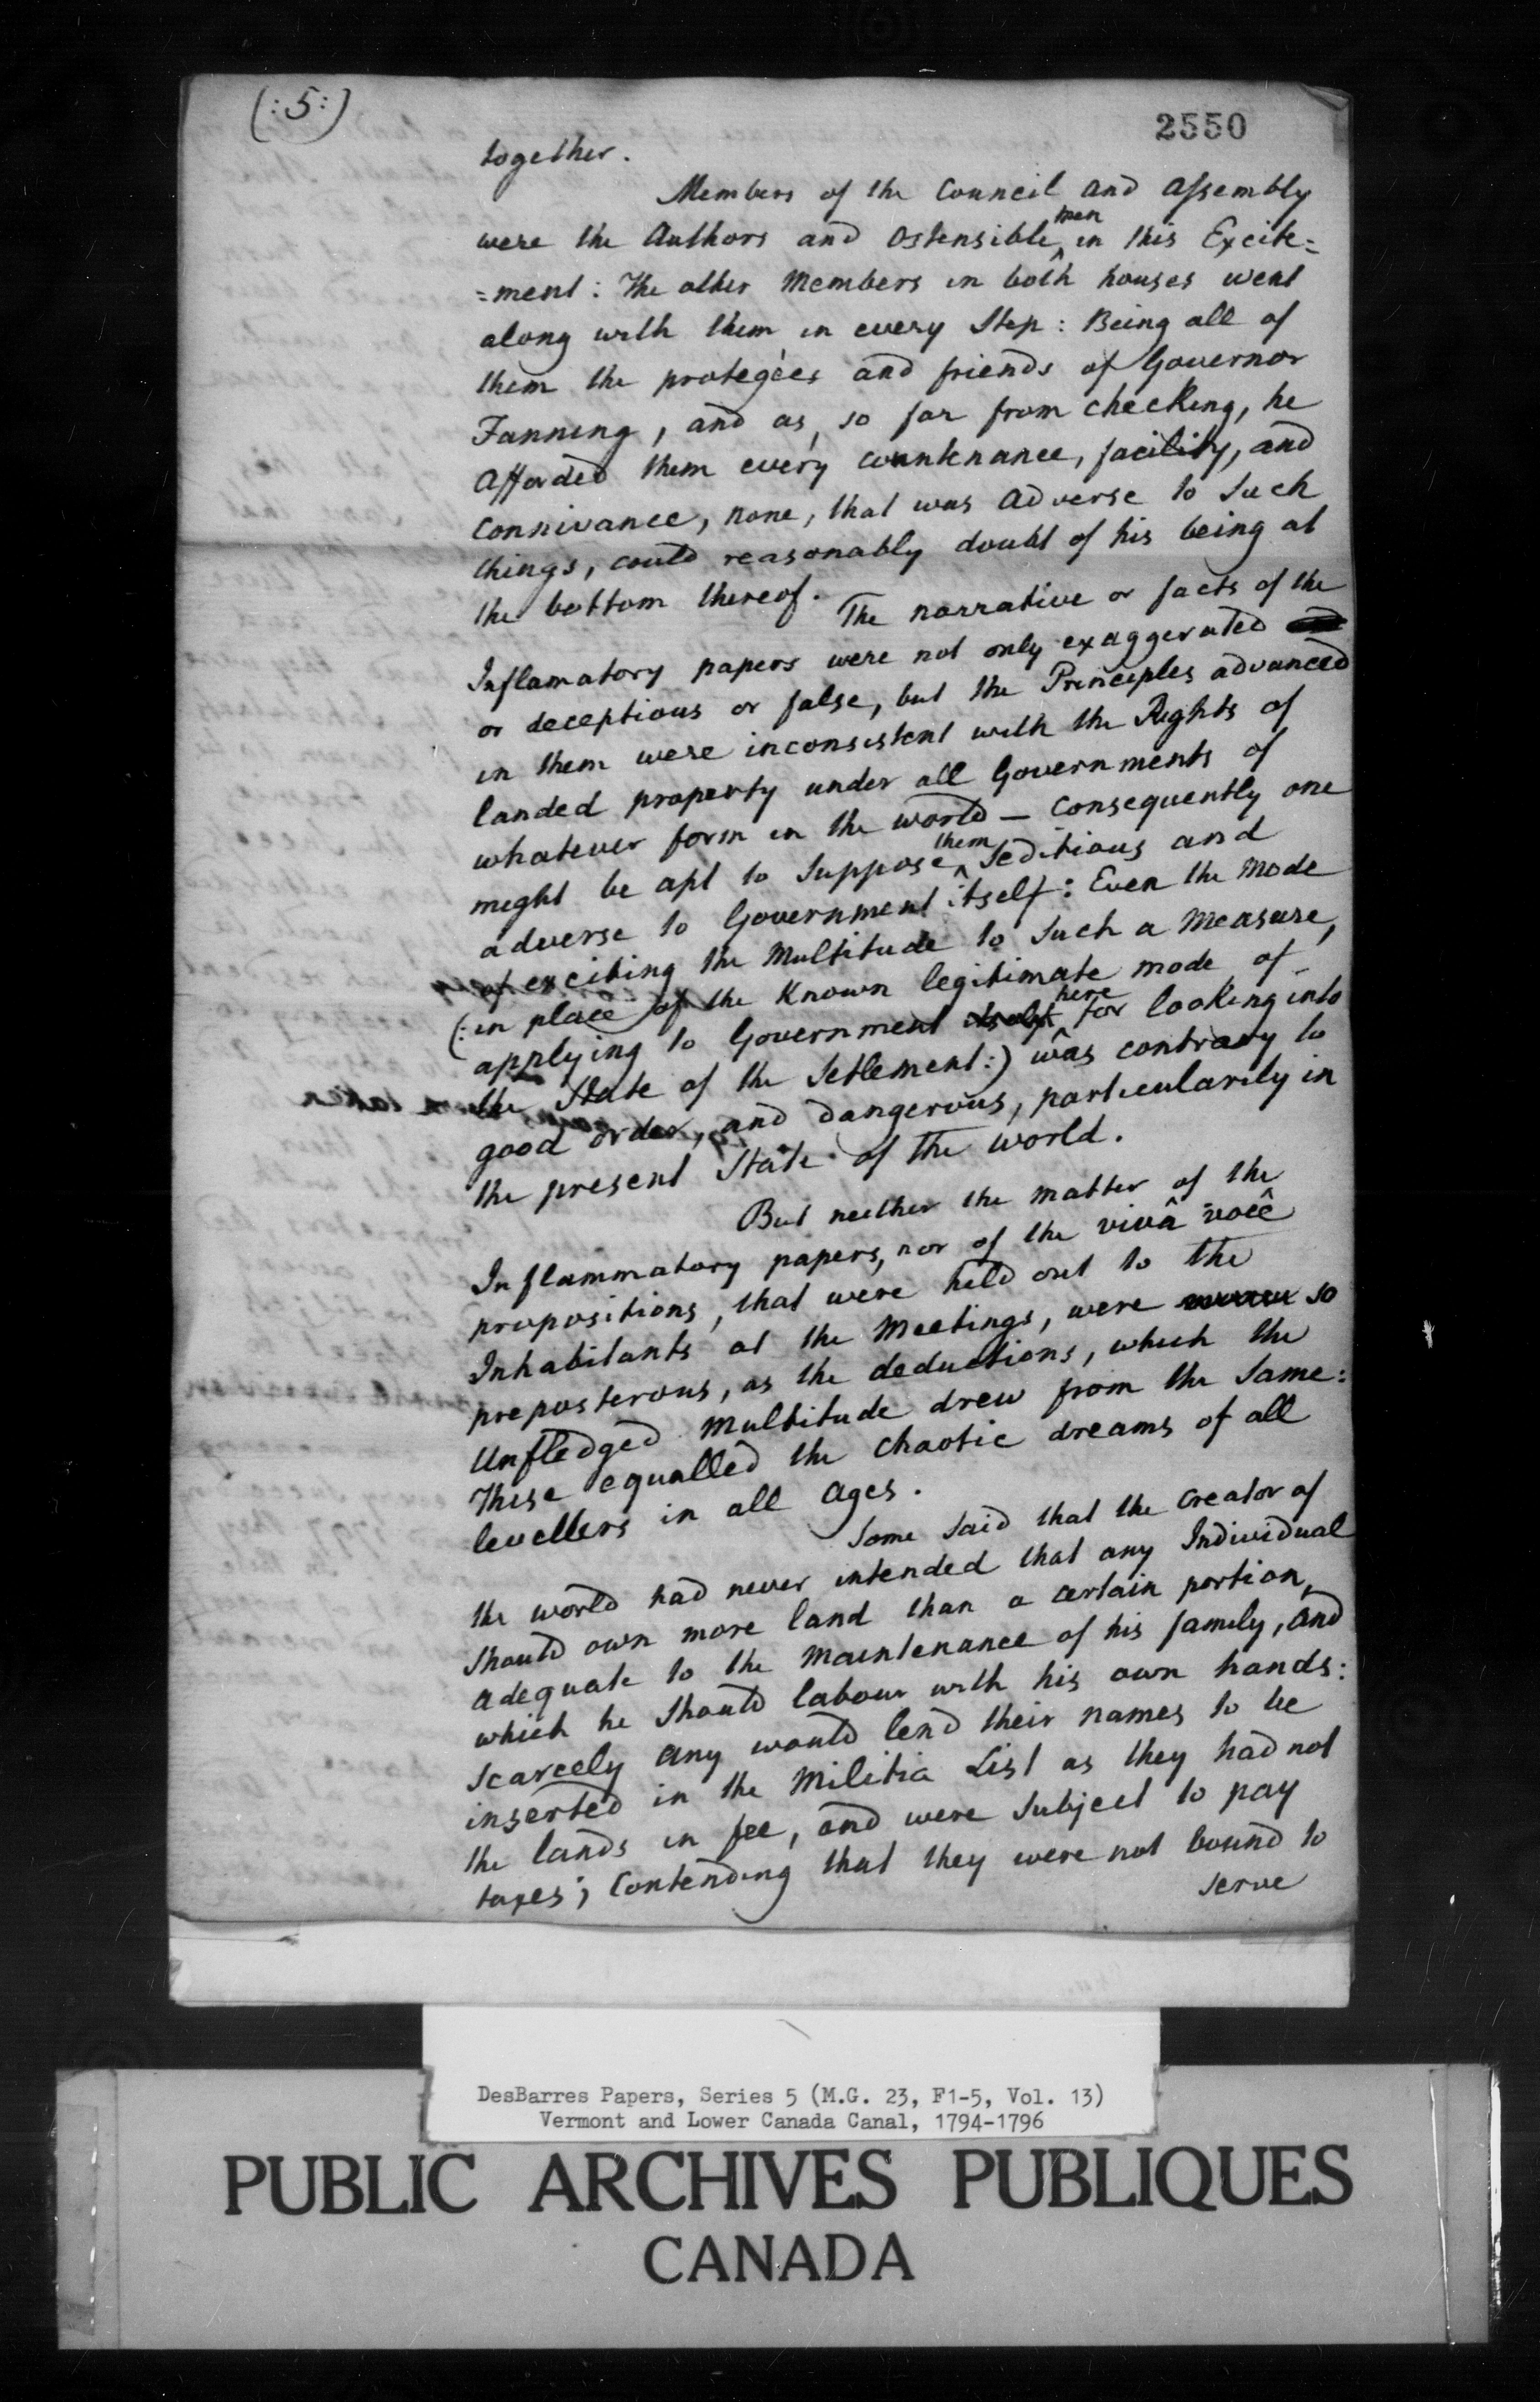 (:5:)
2550
together.
Members of the Council and Assembly
were the Authors and Ostensible men in this Excite=
=ment: The other Members in both houses went
along with them in every Step: Being all of
them the protegées and friends of Governor
Fanning, and as, so far from checking, he
afforded them every countenance, facility, and
connivance, none, that was adverse to Such
things, could reasonably doubt of his being at
the bottom thereof.
The narrative or facts of the
Inflamatory papers were not only exaggerated
or deceptious or false, but the Principles advanced
in them were inconsistent with the Rights of
landed property under all Governments of
whatever form in the world — consequently one
might be apt to Suppose them Seditious and
adverse to Government itself: Even the Mode
of exciting the Multitude to Such a Measure,
(:in place of the Known legitimate mode of
applying to Government here for looking into
the State of the Setlement:) was contrary to
good order, and dangerous, particularily in
the present State of the world.
But neither the matter of the
Inflammatory papers, nor of the vivâ você
propositions, that were held out to the
Inhabitants at the Meetings, were so
preposterous, as the deductions, which the
Unfledged Multitude drew from the Same:
These equalled the chaotic dreams of all
levellers in all ages.
Some Said that the Creator of
the world had never intended that any Individual
Should own more land than a certain portion,
adequate to the Maintenance of his family, and
which he Should labour with his own hands:
Scarcely any would lend their names to be
inserted in the Militia List as they had not
the lands in fee, and were Subject to pay
taxes; Contending that they were not bound to
serve
DesBarres Papers, Series 5 (M.G. 23, F1-5, Vol. 13)
Vermont and Lower Canada Canal, 1794-1796
PUBLIC ARCHIVES PUBLIQUES
CANADA